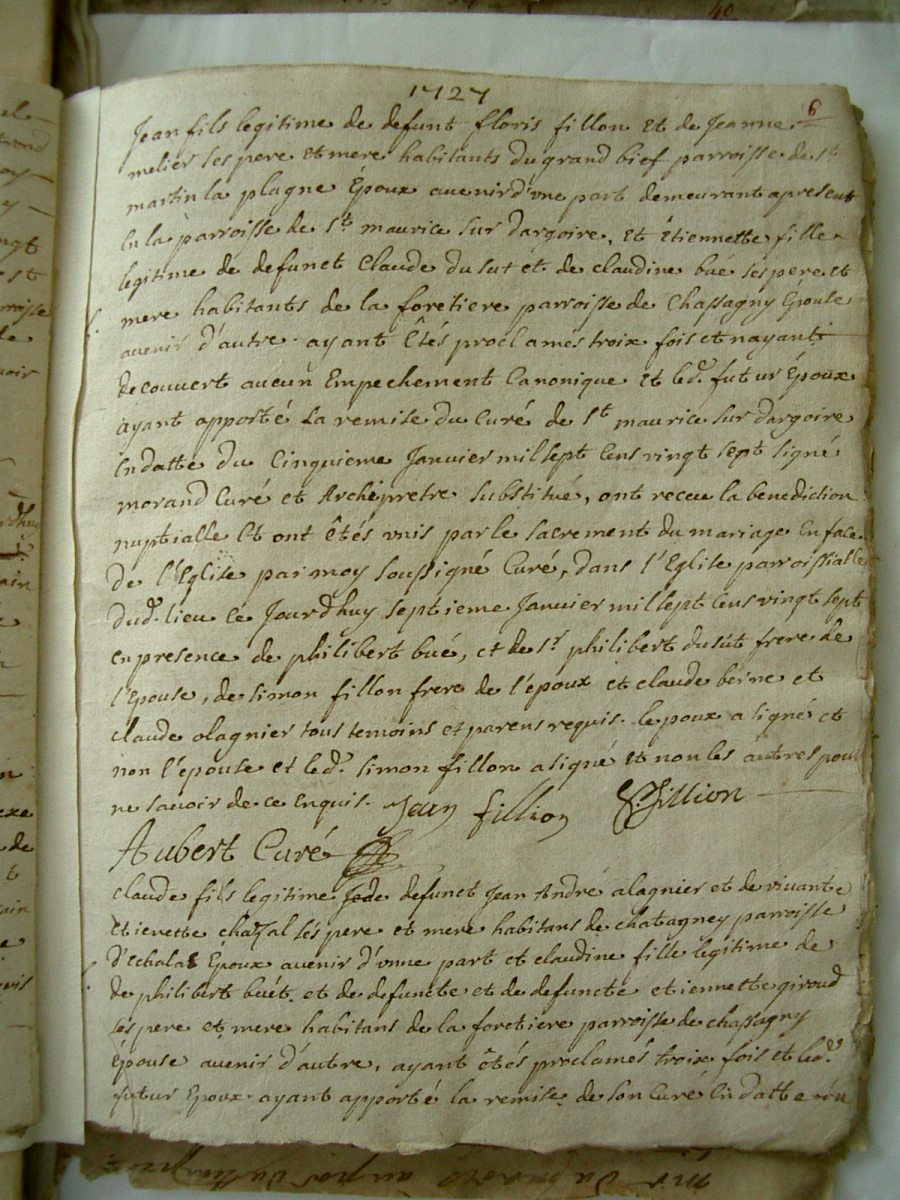 1727
6
Jean fils legitime de defunt floris fillon et de Jeanne
melier ses pere et mere habitants du grand bief parroisse de st
martin la plagne Époux avenir d'vne part demeurant apresent
En la parroisse de st maurice sur dargoire, et Étiennette fille
legitime de defunct Claude du sut et de claudine bué ses pere et
mere habitants de la foretiere parroisse de Chassagny Épouse
avenir d'autre ayant Étés proclamés trois fois et nayant
decouvert aucun Empechement Canonique et led. futur Époux
ayant apporté La remise du Curé de st maurice sur dargoire
En datte du Cinquieme Janvier mil sept Cens vingt sept signé
morand Curé et Archipretre substitué, ont receu la benediction
nuptialle Et ont Étés vnis par le sacrement du mariage En face
de l'Eglise par moy soussigné Curé, dans l'Eglise parroissialle
dud. lieu Ce Jourdhuy septieme Janvier mil sept Cens vingt sept
en presence de philibert bué, et de sr. philibert dusut frere de
l'Epouse, de simon fillon frere de l'epoux et claude berne et
claude olagnier tous temoins et parens requis. lepoux a signé et
non l'epouse et led. simon fillon a signé et non les autres pour
ne savoir de ce Enquis. Jean fillion S. fillion
Aubert Curé
claude fils legitime de defunct Jean André alagnier et de vivante
Etienette chazal ses pere et mere habitans de chatagney parroisse
d'Echalas Époux avenir d'vnne part et claudine fille legitime de
de philibert buét et de defuncte et de defuncte etiennette giroud
ses pere et mere habitans de la foretiere parroisse de chassagny
Épouse avenir d'autre, ayant étés proclamés troix fois et led.
futur Epoux ayant apporté la remise de son Curé En datte